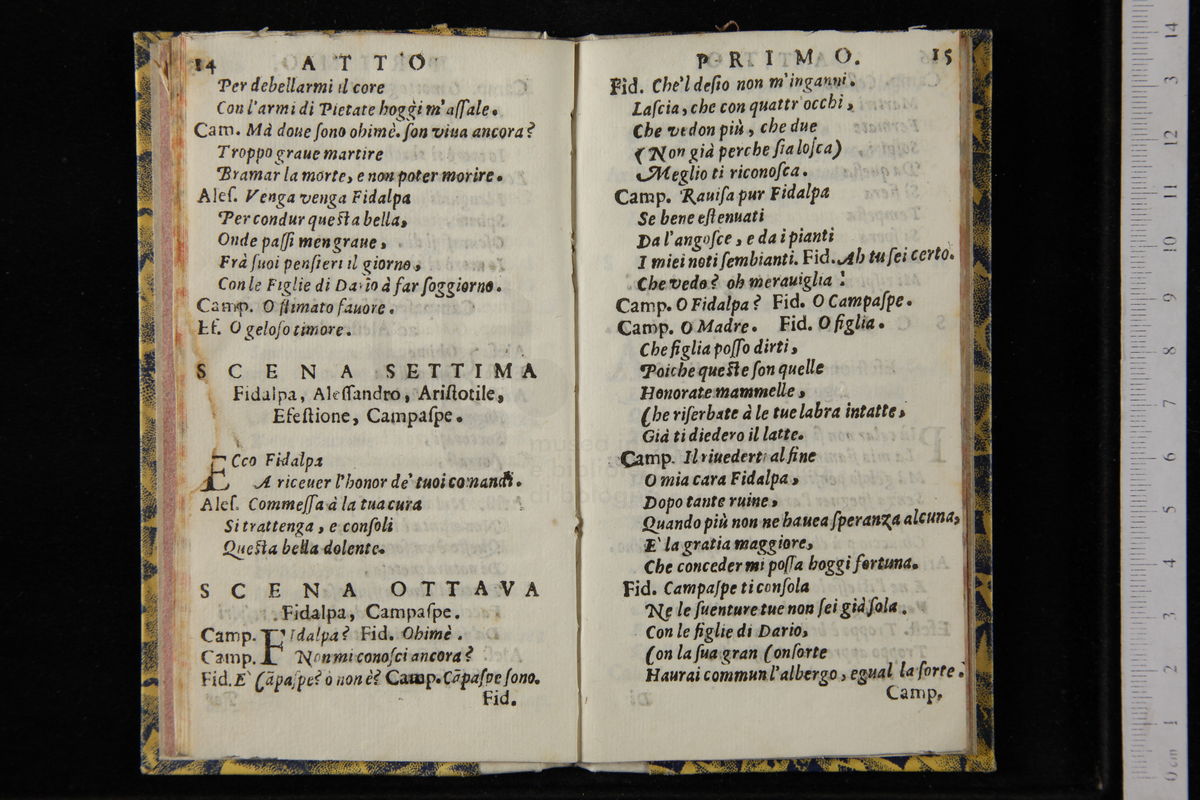 14 ATTO
Per debellarmi il core
Con l'armi di Pietate hoggi m'aſſale.
Cam. Mà doue ſono ohimè. ſon viua ancora?
Troppo graue martire
Bramar la morte, e non poter morire.
Aleſ. Venga venga Fidalpa
Per condur queſta bella,
Onde paſſi men graue,
Frà ſuoi penſieri il giorno,
Con le Figlie di Dario à far ſoggiorno.
Camp. O ſtimato fauore.
Ef. O geloſo timore.
SCENA SETTIMA
Fidalpa, Aleſſandro, Ariſtotile,
Efeſtione, Campaſpe.
ECco Fidalpa
A riceuer l'honor de' tuoi comandi.
Aleſ. Commeſſa à la tua cura
Si trattenga, e conſoli
Queſta bella dolente.
SCENA OTTAVA
Fidalpa, Campaſpe.
Camp. FIdalpa? Fid. Ohimè.
Camp. Non mi conoſci ancora?
Fid. E' Cãpaſpe? ò non è? Camp. Cãpaſpe ſono.
Fid.
PRIMO. 15
Fid. Che'l deſio non m'inganni.
Laſcia, che con quattr'occhi,
Che vedon più, che due
(Non già perche ſia loſca)
Meglio ti riconoſca.
Camp. Rauiſa pur Fidalpa
Se bene eſtenuati
Da l'angoſce, e da i pianti
I miei noti ſembianti. Fid. Ah tu ſei certo.
Che vedo? oh merauiglia!
Camp. O Fidalpa? Fid. O Campaſpe.
Camp. O Madre. Fid. O figlia.
Che figlia poſſo dirti,
Poiche queſte ſon quelle
Honorate mammelle,
Che riſerbate à le tue labra intatte,
Già ti diedero il latte.
Camp. Il riuederti al fine
O mia cara Fidalpa,
Dopo tante ruine,
Quando più non ne hauea ſperanza alcuna,
E' la gratia maggiore,
Che conceder mi poſſa hoggi fortuna.
Fid. Campaſpe ti conſola
Ne le ſuenture tue non ſei già ſola.
Con le figlie di Dario,
Con la ſua gran Conſorte
Haurai commun l'albergo, egual la ſorte.
Camp.